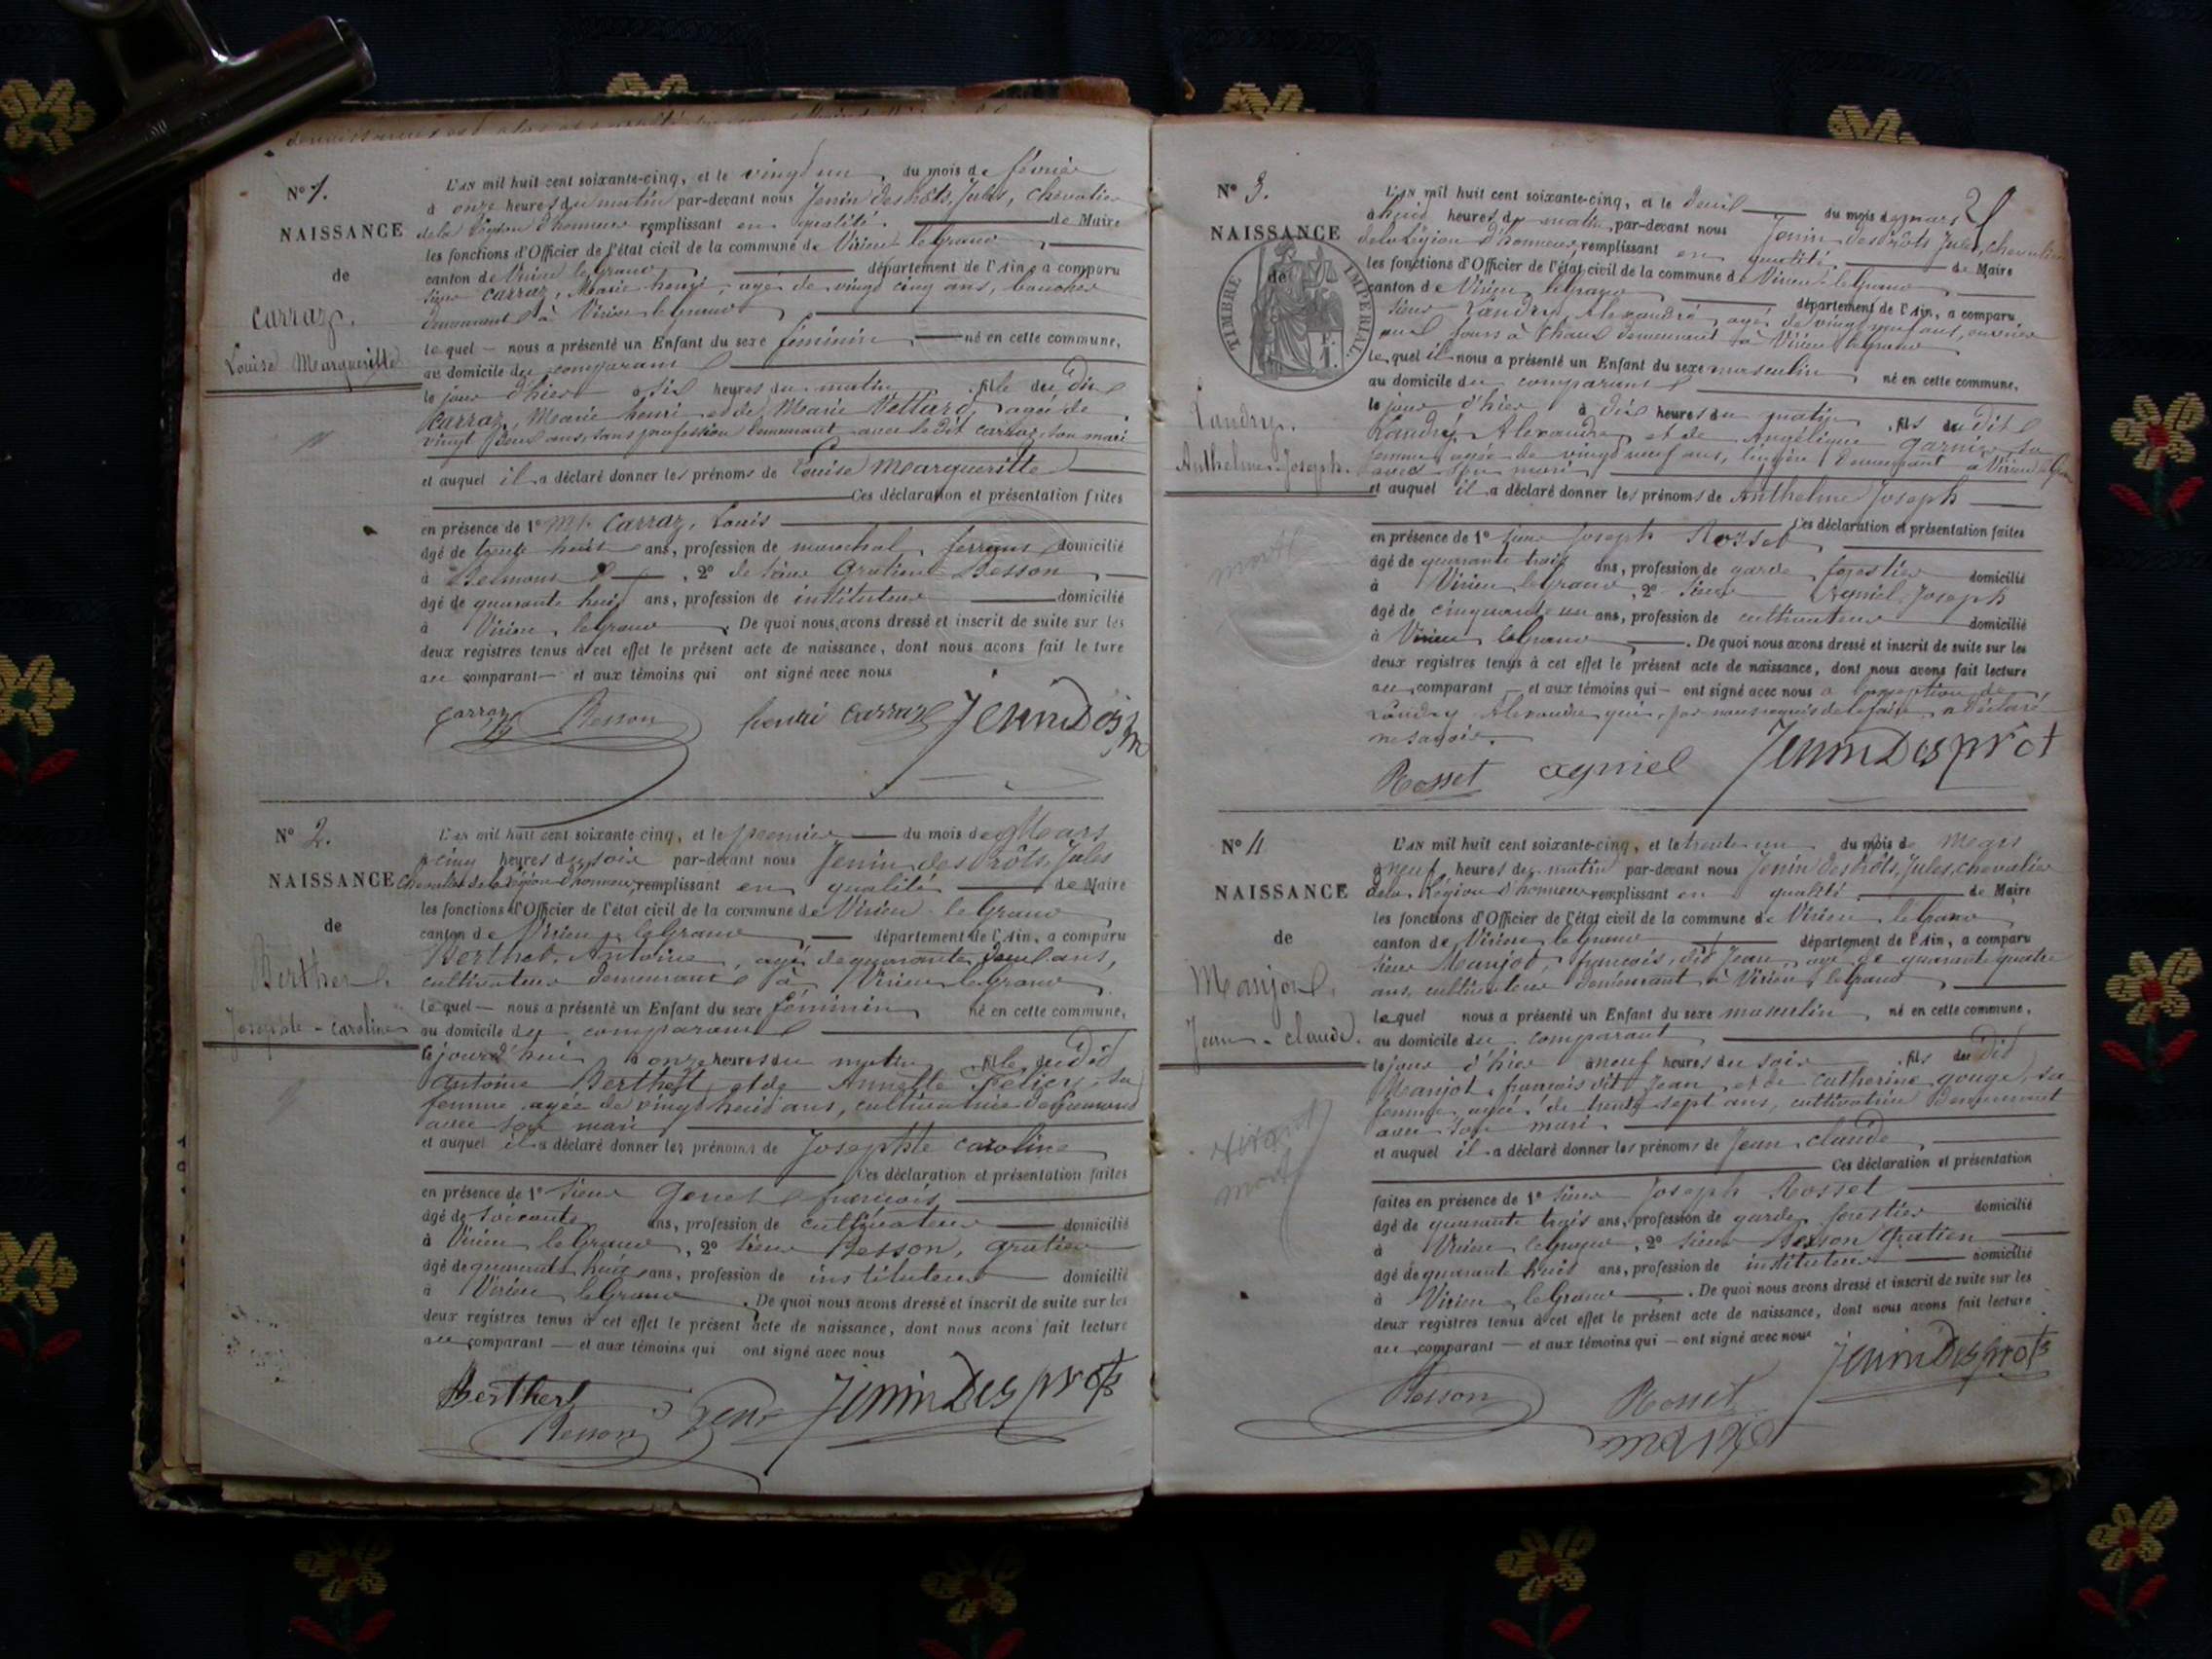 No 1.
NAISSANCE
de
Carraz.
Louise Margueritte
L'AN mil huit cent soixante-cinq, et le vingt un du mois de février
à onze heures du matin par-devant nous Jenin des Prôts, Jules, Chevalier
de la Légion d'honneur remplissant en qualité de Maire
les fonctions d'Officier de l'état civil de la commune de Virieu le Grand
canton de Virieu le Grand département de l'Ain, a comparu
sieur Carraz, Marie henri, agé de vingt cinq ans, boucher
demeurant à Virieu le grand
lequel nous a présenté un Enfant du sexe féminin né en cette commune,
au domicile du comparant
le jour d'hier à six heures du matin fille du dit
Carraz, Marie henri et de Marie Vettard, agée de
vingt deux ans, sans profession demeurant avec le dit carraz son mari
et auquel il a déclaré donner les prénoms de Louise Margueritte
Ces déclaration et présentation faites
en présence de 1° Mr. Carraz, Louis
âgé de trente huit ans, profession de marechal ferrant domicilié
à Belmont, 2° de sieur Gratien Besson
âgé de quarante huit ans, profession de instituteur domicilié
à Virieu le Grand. De quoi nous avons dressé et inscrit de suite sur les
deux registres tenus à cet effet le présent acte de naissance, dont nous avons fait lecture
au comparant et aux témoins qui ont signé avec nous
carraz Besson henri Carraz Jenin Des pr
No 2.
NAISSANCE
de
Berthet
Josephte - caroline
L'AN mil huit cent soixante-cinq, et le premier du mois de Mars
à cinq heures du soir par-devant nous Jenin des Prôts, Jules
Chevalier de la Légion d'honneur, remplissant en qualité de Maire
les fonctions d'Officier de l'état civil de la commune de Virieu le Grand
canton de Virieu le Grand département de l'Ain, a comparu
Berthet, Antoine, agé de quarante deux ans,
cultivateur demeurant à Virieu le Grand
lequel nous a présenté un Enfant du sexe féminin né en cette commune,
au domicile du comparant
le jourd'hui à onze heures du matin fille du dit
Antoine Berthet et de Annette Felicy, sa
femme agée de vingt huit ans, cultivatrice demeurant
avec son mari
et auquel il a déclaré donner les prénoms de Josephte caroline
Ces déclaration et présentation faites
en présence de 1° sieur Genet françois
âgé de soixante ans, profession de cultivateur domicilié
à Virieu le Grand, 2° sieur Besson, Gratien
âgé de quarante huit ans, profession de instituteur domicilié
à Virieu le Grand. De quoi nous avons dressé et inscrit de suite sur les
deux registres tenus à cet effet le présent acte de naissance, dont nous avons fait lecture
au comparant — et aux témoins qui ont signé avec nous
Berthet Jenin Des prots
Besson
No 3.
NAISSANCE
de
TIMBRE IMPERIAL
Landry.
Anthelme-Joseph.
mort
L'AN mil huit cent soixante-cinq, et le deux du mois de mars
à huit heures du matin, par-devant nous Jenin des Prôts Jules, Chevalier
de la Légion d'honneur, remplissant en qualité de Maire
les fonctions d'Officier de l'état civil de la commune de Virieu le Grand
canton de Virieu le grand département de l'Ain, a comparu
sieur Landry, Alexandre, agé de vingt neuf ans, ouvrier
aux fours à Chaux demeurant à Virieu le grand
lequel il nous a présenté un Enfant du sexe masculin né en cette commune,
au domicile du comparant
le jour d'hier à dix heures du matin fils du dit
Landry, Alexandre, et de Angélique garnier sa
femme agée de vingt neuf ans, lingère demeurant à Virieu le Grand
avec son mari
et auquel il a déclaré donner les prénoms de Anthelme Joseph
Ces déclaration et présentation faites
en présence de 1° sieur Joseph Rosset
âgé de quarante trois ans, profession de garde forestier domicilié
à Virieu le Grand, 2° sieur Aymel Joseph
âgé de cinquante un ans, profession de cultivateur domicilié
à Virieu le Grand. De quoi nous avons dressé et inscrit de suite sur les
deux registres tenus à cet effet le présent acte de naissance, dont nous avons fait lecture
au comparant — et aux témoins qui — ont signé avec nous a l'exception de
Landry Alexandre qui, par nous requis de le faire, a déclaré
ne savoir.
Rosset aymel Jenin Des prot
No 4
NAISSANCE
de
Manjot.
Jean - claude.
mort
L'AN mil huit cent soixante-cinq, et le trente un du mois de Mars
à neuf heures du matin par-devant nous Jenin des Prôts, Jules, Chevalier
de la Légion d'honneur remplissant en qualité de Maire
les fonctions d'Officier de l'état civil de la commune de Virieu le Grand
canton de Virieu le Grand département de l'Ain, a comparu
sieur Manjot, françois, dit Jean, agé de quarante quatre
ans, cultivateur demeurant à Virieu le grand
lequel nous a présenté un Enfant du sexe masculin, né en cette commune,
au domicile du comparant
le jour d'hier à neuf heures du soir fils du dit
Manjot, françois dit Jean, et de Catherine gouge, sa
femme agée de trente sept ans, cultivatrice demeurant
avec son mari
et auquel il a déclaré donner les prénoms de Jean claude
Ces déclaration et présentation
faites en présence de 1° sieur Joseph Rosset
âgé de quarante trois ans, profession de garde forestier domicilié
à Virieu le grand, 2° sieur Besson Gratien
âgé de quarante huit ans, profession de instituteur domicilié
à Virieu le Grand. De quoi nous avons dressé et inscrit de suite sur les
deux registres tenus à cet effet le présent acte de naissance, dont nous avons fait lecture
au comparant — et aux témoins qui — ont signé avec nous
Jenin Des prots
Besson Rosset